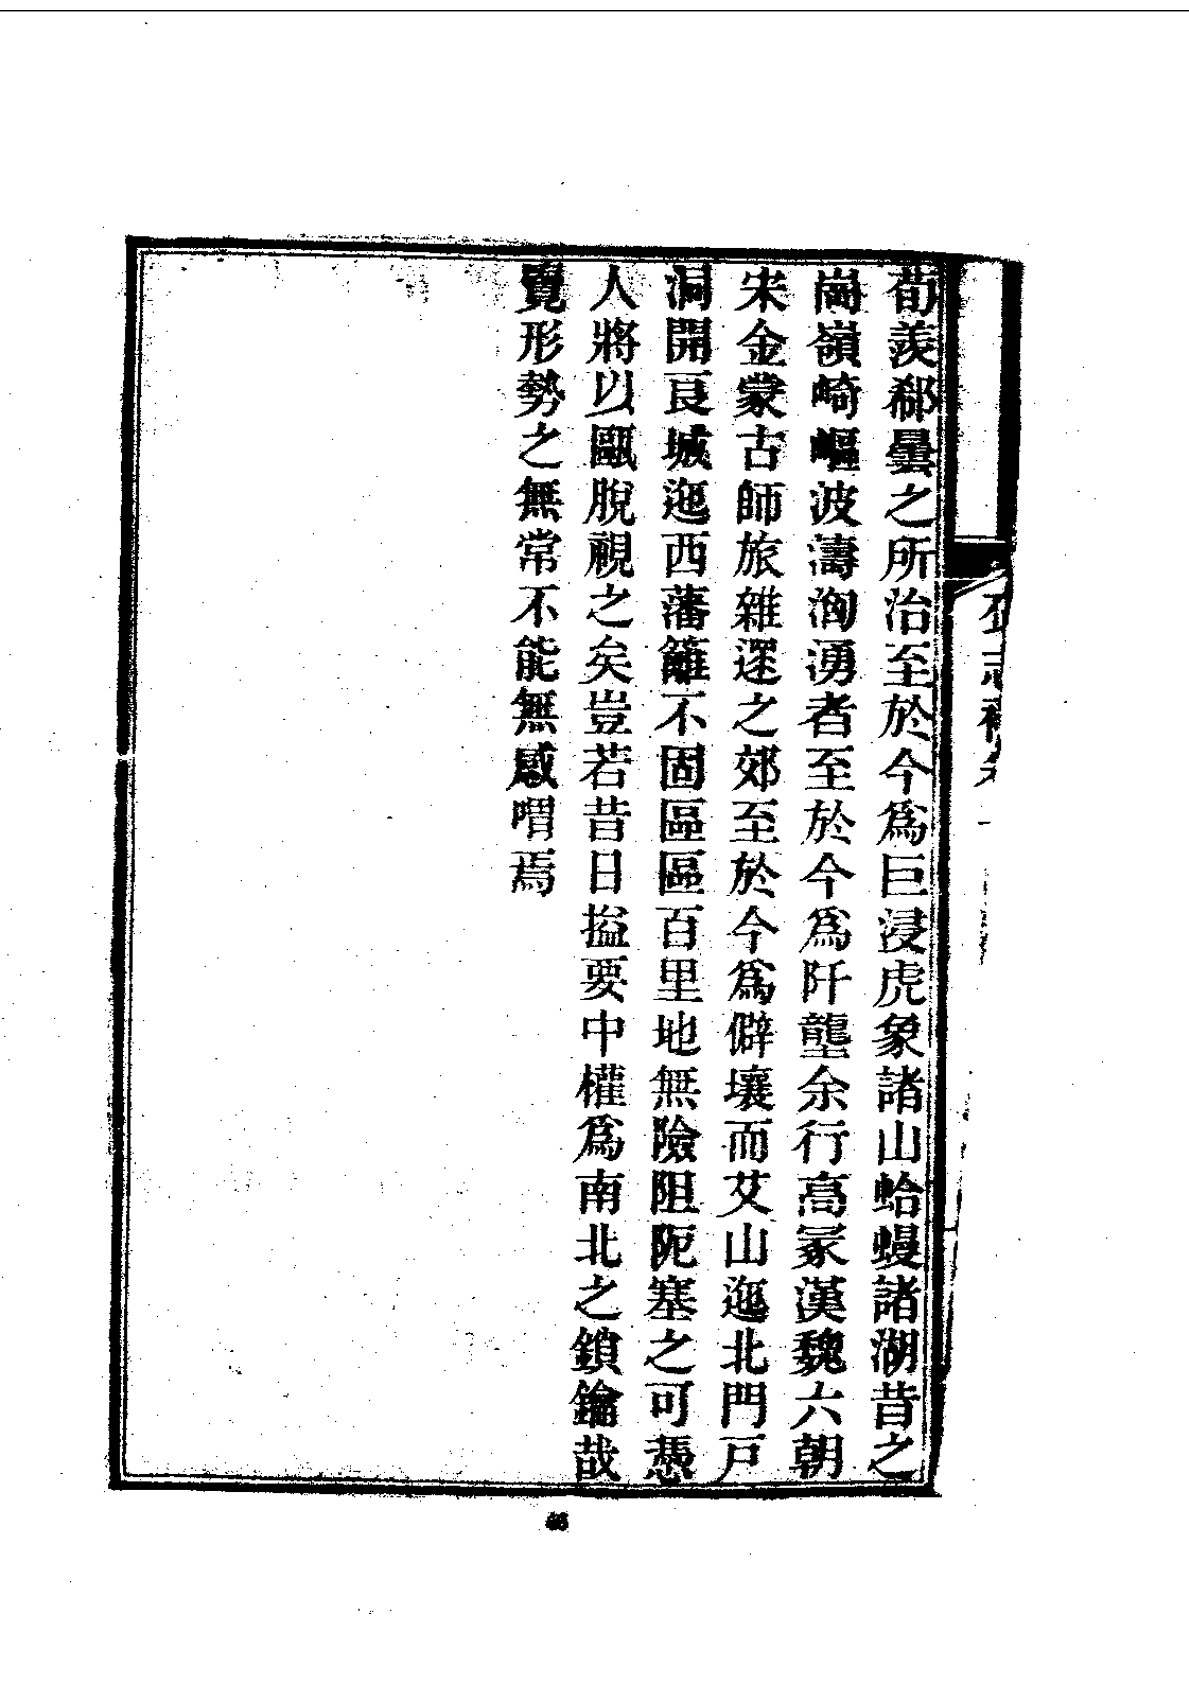 荀羨郗曇之所治至於今爲巨浸虎象諸山蛤蟃諸湖昔之
崗嶺崎嶇波濤洶湧者至於今爲阡壟余行高冢漢魏六朝
宋金蒙古師旅雜遝之郊至於今爲僻壤而艾山迤北門戸
洞開良城迤西藩籬不固區區百里地無險阻阨塞之可憑
人將以甌脫視之矣豈若昔日搤要中權爲南北之鎖鑰哉
覽形勢之無常不能無感喟焉
志
46